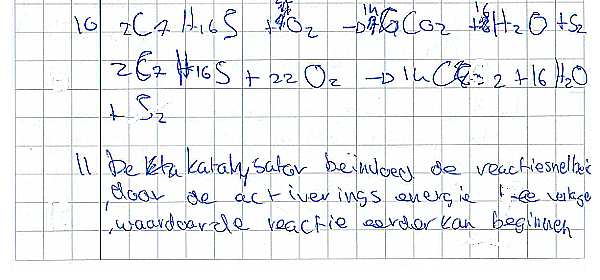 10 2C7H16S + 22O2 → 14CO2 + 16H2O + S2
2C7H16S + 22O2 → 14CO2 + 16H2O
+ S2
11 De katalysator beinvloed de reactiesnelheid
door de activerings energie te verlage
, waardoor de reactie eerder kan beginnen